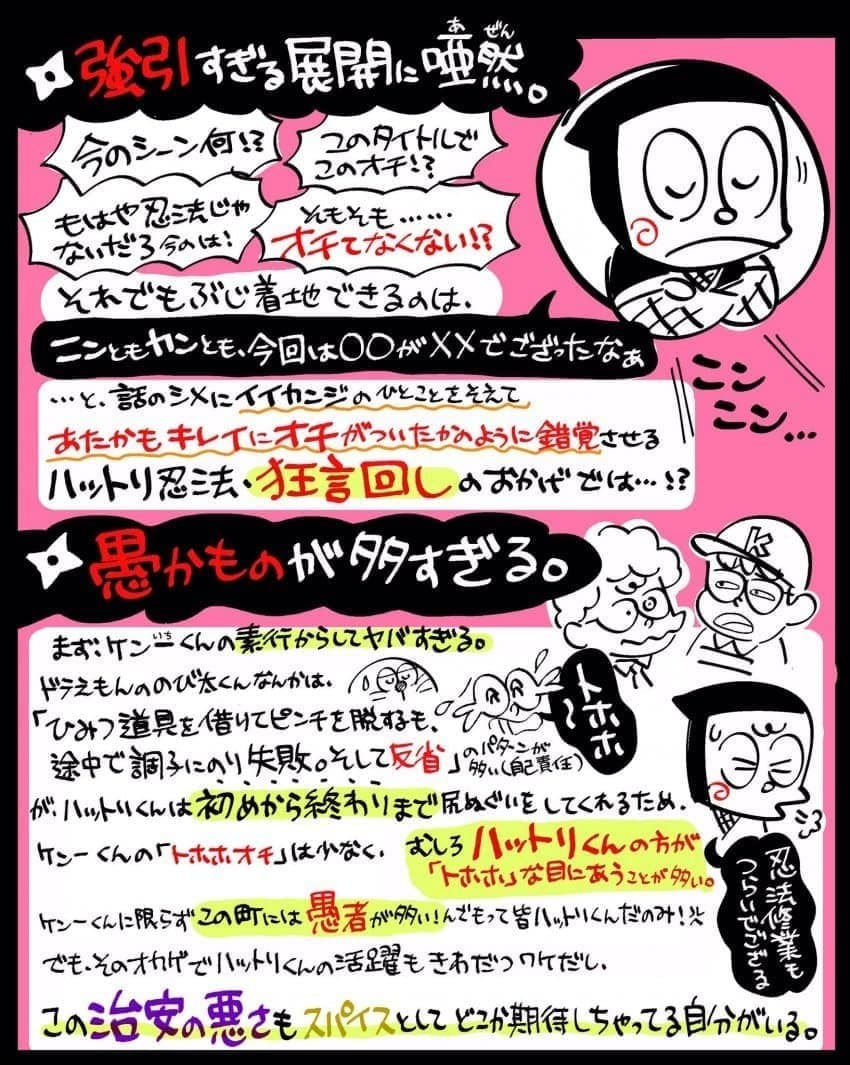 強引すぎる展開に唖然。
あ ぜん
今のシーン何!?
このタイトルで
このオチ!?
もはや忍法じゃ
ないだろ今のは!
そもそも……
オチてなくない!?
それでもぶじ着地できるのは、
ニンともカンとも、今回は〇〇が××でござったなぁ
…と、話のシメにイイカンジのひとことをそえて
あたかもキレイにオチがついたかのように錯覚させる
ハットリ忍法・狂言回しのおかげでは…!?
ニン
ニン…
愚かものが多すぎる。
K
まず、ケン一くんの素行からしてヤバすぎる。
いち
ドラえもんののび太くんなんかは、
「ひみつ道具を借りてピンチを脱するも、
途中で調子にのり失敗。そして反省」のパターンが
多い(自己責任)
トホホ〜
が、ハットリくんは初めから終わりまで尻ぬぐいをしてくれるため、
ケン一くんの「トホホオチ」は少なく、むしろハットリくんの方が
「トホホ」な目にあうことが多い。
忍法修業も
つらいでござる
ケン一くんに限らずこの町には愚者が多い!んでもって皆ハットリくんだのみ!
でも、そのオカゲでハットリくんの活躍もきわだつワケだし、
この治安の悪さもスパイスとしてどこか期待しちゃってる自分がいる。